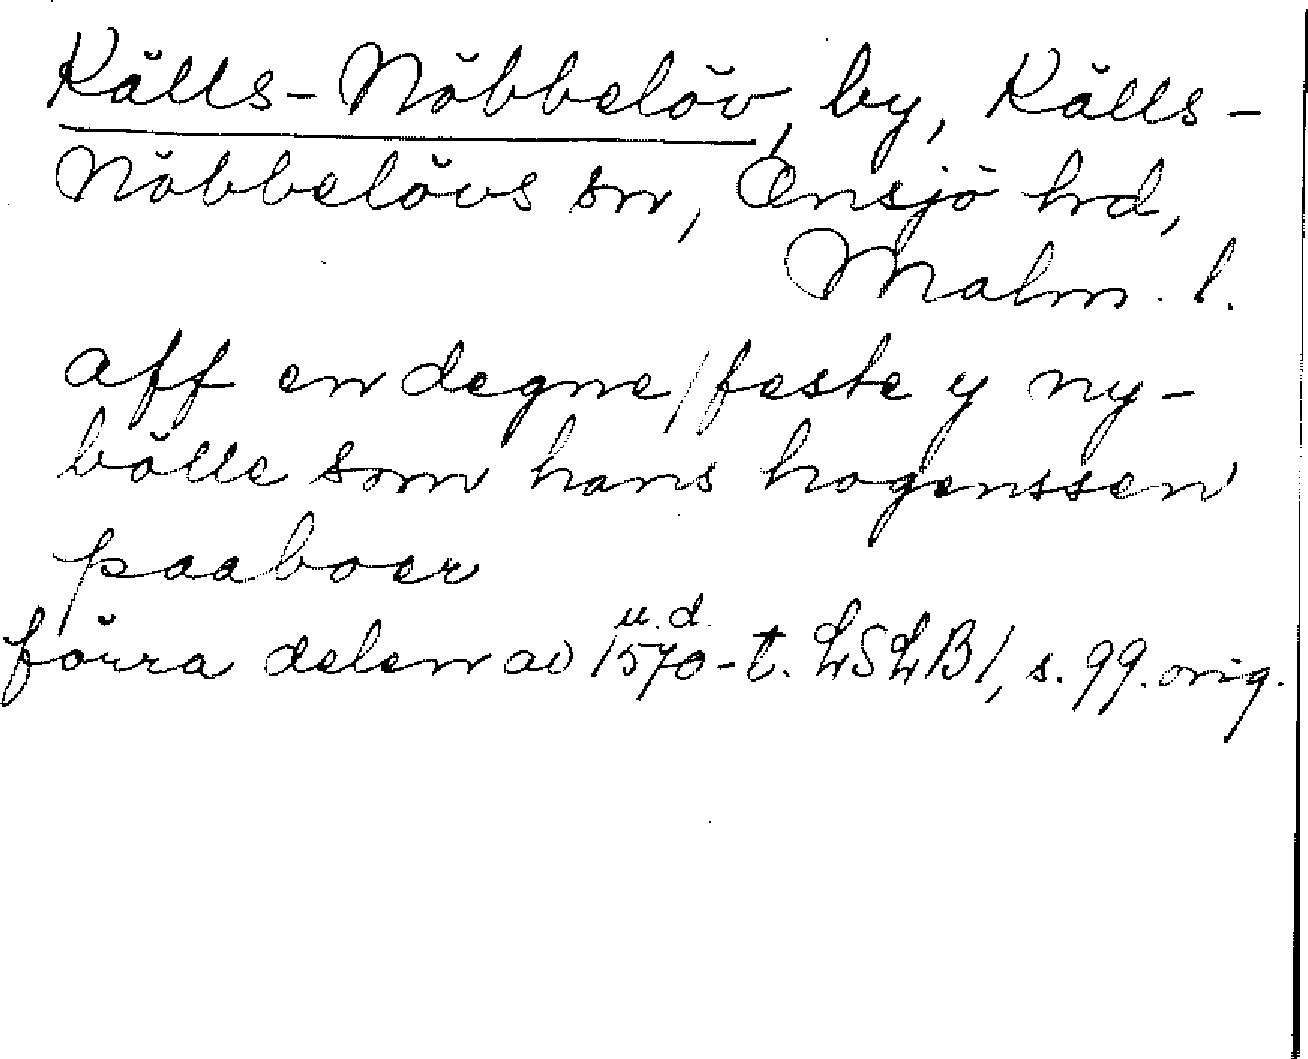 Källs-Nöbbelöv, by, Källs-
Nöbbelövs sn, Onsjö hrd,
Malm. l.
aff en degne/feste y ny-
bölle som hans hogenssen
paaboer
u.d.
förra delen av 1570-t. LSLB1, s. 99. orig.